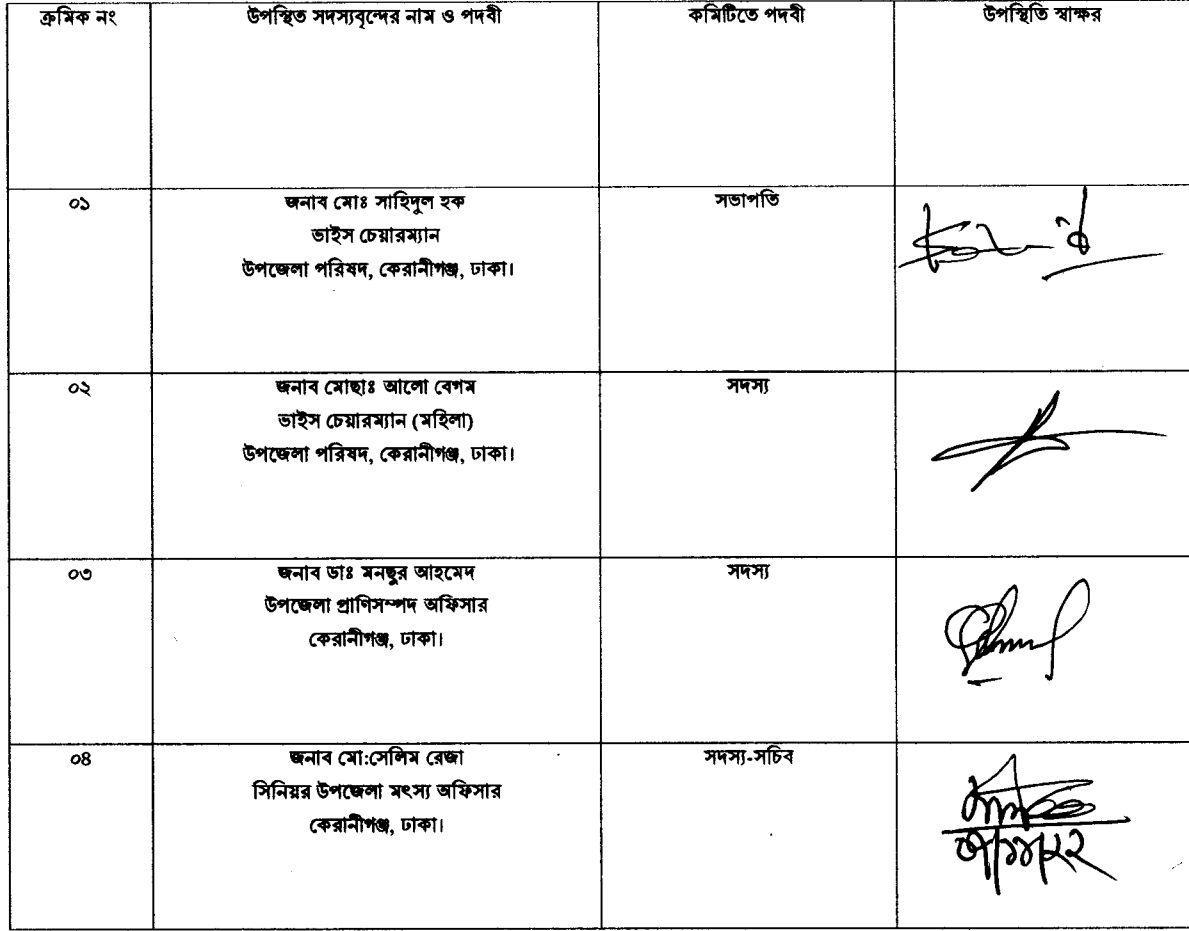 ক্রমিক নং উপস্থিত সদস্যবৃন্দের নাম ও পদবী কমিটিতে পদবী উপস্থিতি স্বাক্ষর
০১ জনাব মোঃ সাহিদুল হক সভাপতি
ভাইস চেয়ারম্যান
উপজেলা পরিষদ, কেরানীগঞ্জ, ঢাকা।
০২ জনাব মোছাঃ আলো বেগম সদস্য
ভাইস চেয়ারম্যান (মহিলা)
উপজেলা পরিষদ, কেরানীগঞ্জ, ঢাকা।
০৩ জনাব ডাঃ মনছুর আহমেদ সদস্য
উপজেলা প্রাণিসম্পদ অফিসার
কেরানীগঞ্জ, ঢাকা।
০৪ জনাব মো:সেলিম রেজা সদস্য-সচিব
সিনিয়র উপজেলা মৎস্য অফিসার
কেরানীগঞ্জ, ঢাকা।